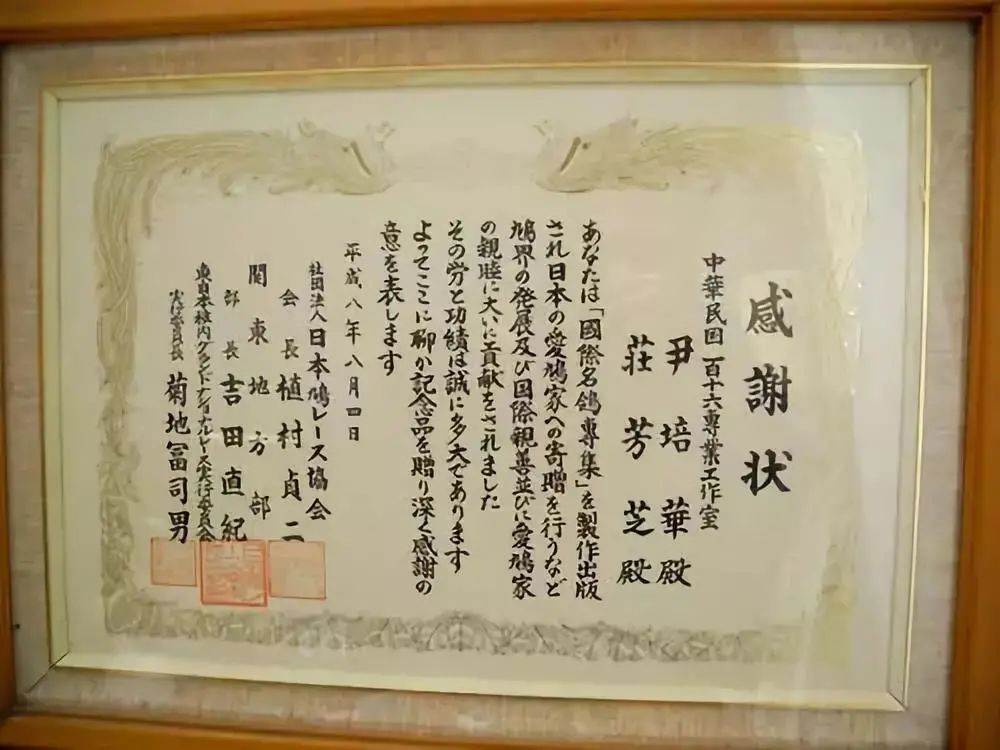 感謝状
中華民国 百十六専業工作室
尹培華殿
荘芳芝殿
あなたは「國際名鴿專集」を製作出版
され日本の愛鳩家への寄贈を行うなど
鳩界の発展及び国際親善並びに愛鳩家
の親睦に大いに貢献をされました
その労と功績は誠に多大であります
よってここに聊か記念品を贈り深く感謝の
意を表します
平成八年八月四日
社団法人 日本鳩レース協会
会長 植村貞二
関東地方部
部長 吉田直紀
東日本地区内グランドナショナルレース実行委員会
実行委員長 菊地冨司男